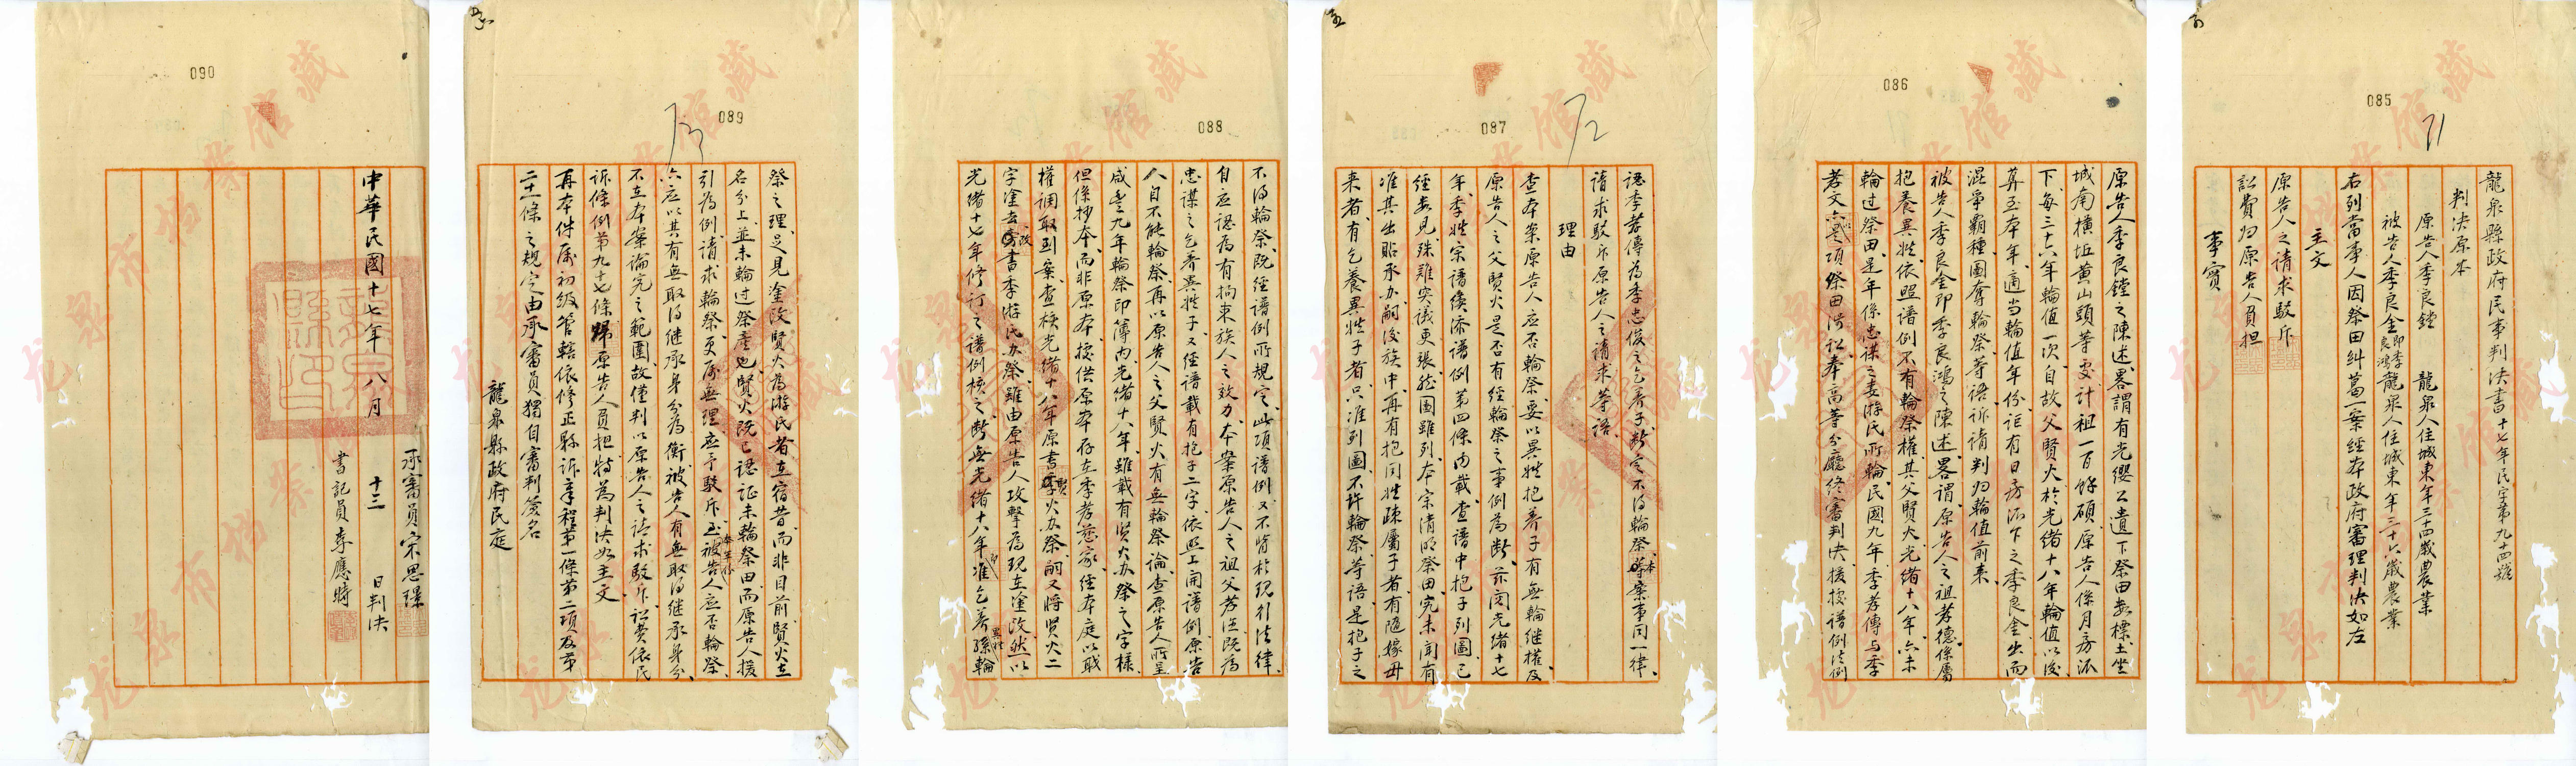 085
龍泉縣政府民事判決書十七年民字第九十四號
判決原本
原告人季良鏜 龍泉人住城東年三十四歲農業
被告人季良金即季良鴻龍泉人住城東年三十六歲農業
右列當事人因祭田糾葛一案經本政府審理判決如左
主文
原告人之請求駁斥
訟費归原告人負担
事實
086
原告人季良鏜之陳述畧謂有光纓公遺下祭田土坐
城南橫坵黃山頭等處計租一百餘碩原告人係月房派
下每三十六年輪值一次自故父賢火於光緒十八年輪值以後
算至本年適当輪值年份詎有日房派下之季良金出而
混爭霸種圖奪輪祭等語訴請判归輪值前來
被告人季良金即季良鴻之陳述畧謂原告人之祖孝德係屬
抱養異姓依照譜例不有輪祭權其父賢火光緒十八年亦未
輪过祭田是年係忠謀之妻游氏所輪民國九年季孝傳与季
孝文亦是項祭田涉訟奉高等分廳終審判決援據譜例法例
087
認季孝傳為季忠俊之乞養子斷定不得輪祭本案事同一律
請求駁斥原告人之請求等語
理由
查本案原告人应否輪祭要以異姓抱養子有無輪継權及
原告人之父賢火是否有經輪祭之事例為斷茲閱光緒十七
年季姓宗譜後添譜例第四條内載查譜中抱子列圖已
經安見殊难突議更張茲圖雖列本宗清明祭田究未聞有
准其出貼承办嗣後族中再有抱同姓疎屬子者有隨嫁毋
来者有乞養異姓子者只准列圖不許輪祭等語是抱子之
088
不得輪祭既經譜例所規定此項譜例又不背於現行法律
自应認為有拘束族人之效力本案原告人之祖父孝德既為
忠謀之乞養異姓子又經譜載有抱子二字依照上開譜例原告
人自不能輪祭再以原告人之父賢火有無輪祭論查原告人所呈
咸豐九年輪祭印簿内光緒十八年雖載有賢火办祭之字樣
但係抄本而非原本據供原本存在季孝慈家經本庭以职
權調取到案查核光緒十八年原書賢火办祭嗣又將賢火二
字塗去改書季游氏办祭雖由原告人攻擊為現在塗改然以
光緒十七年修訂之譜例核之斷無光緒十八年即准乞養異姓孫輪
089
祭之理足見塗改賢火為游氏者在宿昔而非目前賢火在
名分上並未輪过祭產也賢火既已認証未輪祭田而原告人援
引為例請求輪祭更屬無理应予駁斥至被告人应否輪祭
亦应以其有無取得继承身分為衡被告人有無取得继承身分
不在本案論究之範圍故僅判以原告人之請求駁斥訟費依民
訴條例第九十七條歸原告人負担特為判決如主文
再本件屬初級管轄依修正縣訴章程第一條第二項及第
二十一條之規定由承審員獨自審判簽名
龍泉縣政府民庭
090
承審員宋思璟
中華民國十七年八月十三日判決
書記員李應時